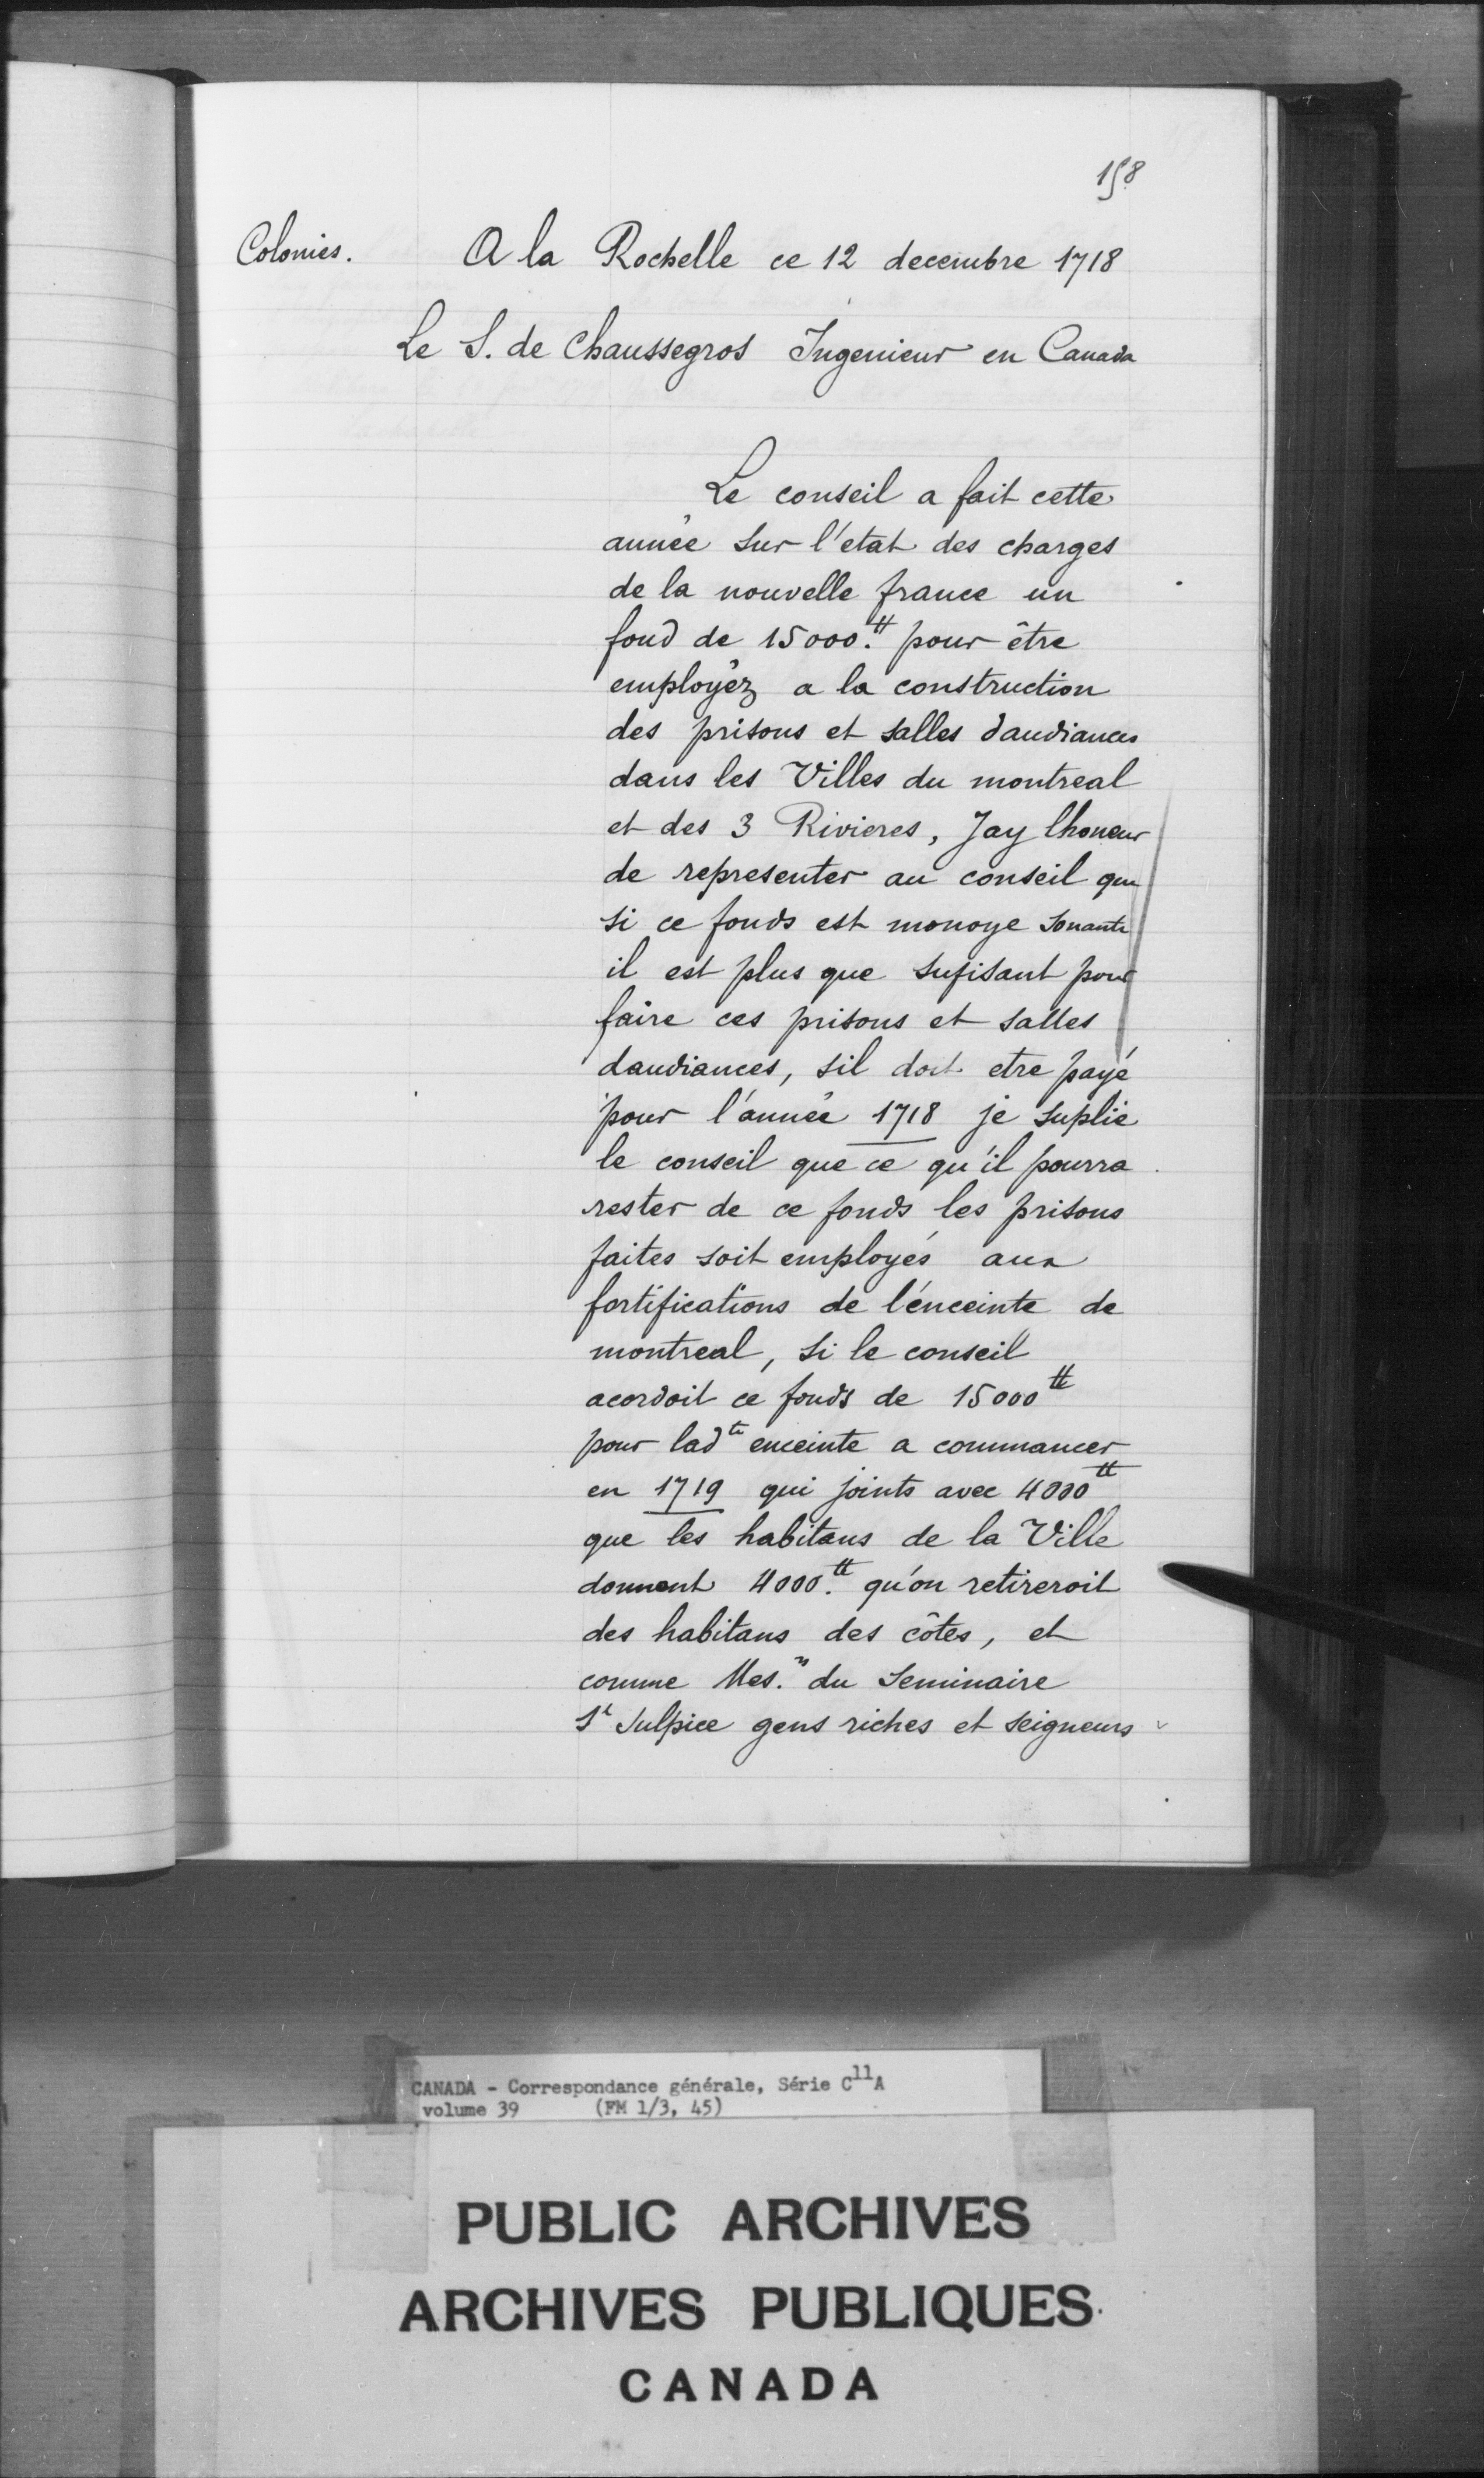 158
Colonies. A la Rochelle ce 12 decembre 1718
Le S. de Chaussegros Ingenieur en Canada
Le conseil a fait cette
année sur l'etat des charges
de la nouvelle france un
fond de 15000.ᵗᵗ pour être
employéz a la construction
des prisons et salles daudiances
dans les Villes du montreal
et des 3 Rivieres, Jay lhoneur
de representer au conseil que
si ce fonds est monoye sonante
il est plus que sufisant pour
faire ces prisons et salles
daudiances, sil doit etre payé
pour l'année 1718 je suplie
le conseil que ce qu'il pourra
rester de ce fonds les prisons
faites soit employés aux
fortifications de l'énceinte de
montreal, si le conseil
acordoit ce fonds de 15000ᵗᵗ
pour ladᵗᵉ enceinte a commancer
en 1719 qui joints avec 4000ᵗᵗ
que les habitans de la Ville
donnent 4000.ᵗᵗ qu'on retireroit
des habitans des côtes, et
comme Mes.ʳˢ du Seminaire
Sᵗ Sulpice gens riches et seigneurs
CANADA - Correspondance générale, Série C¹¹A
volume 39 (FM 1/3, 45)
PUBLIC ARCHIVES
ARCHIVES PUBLIQUES
CANADA